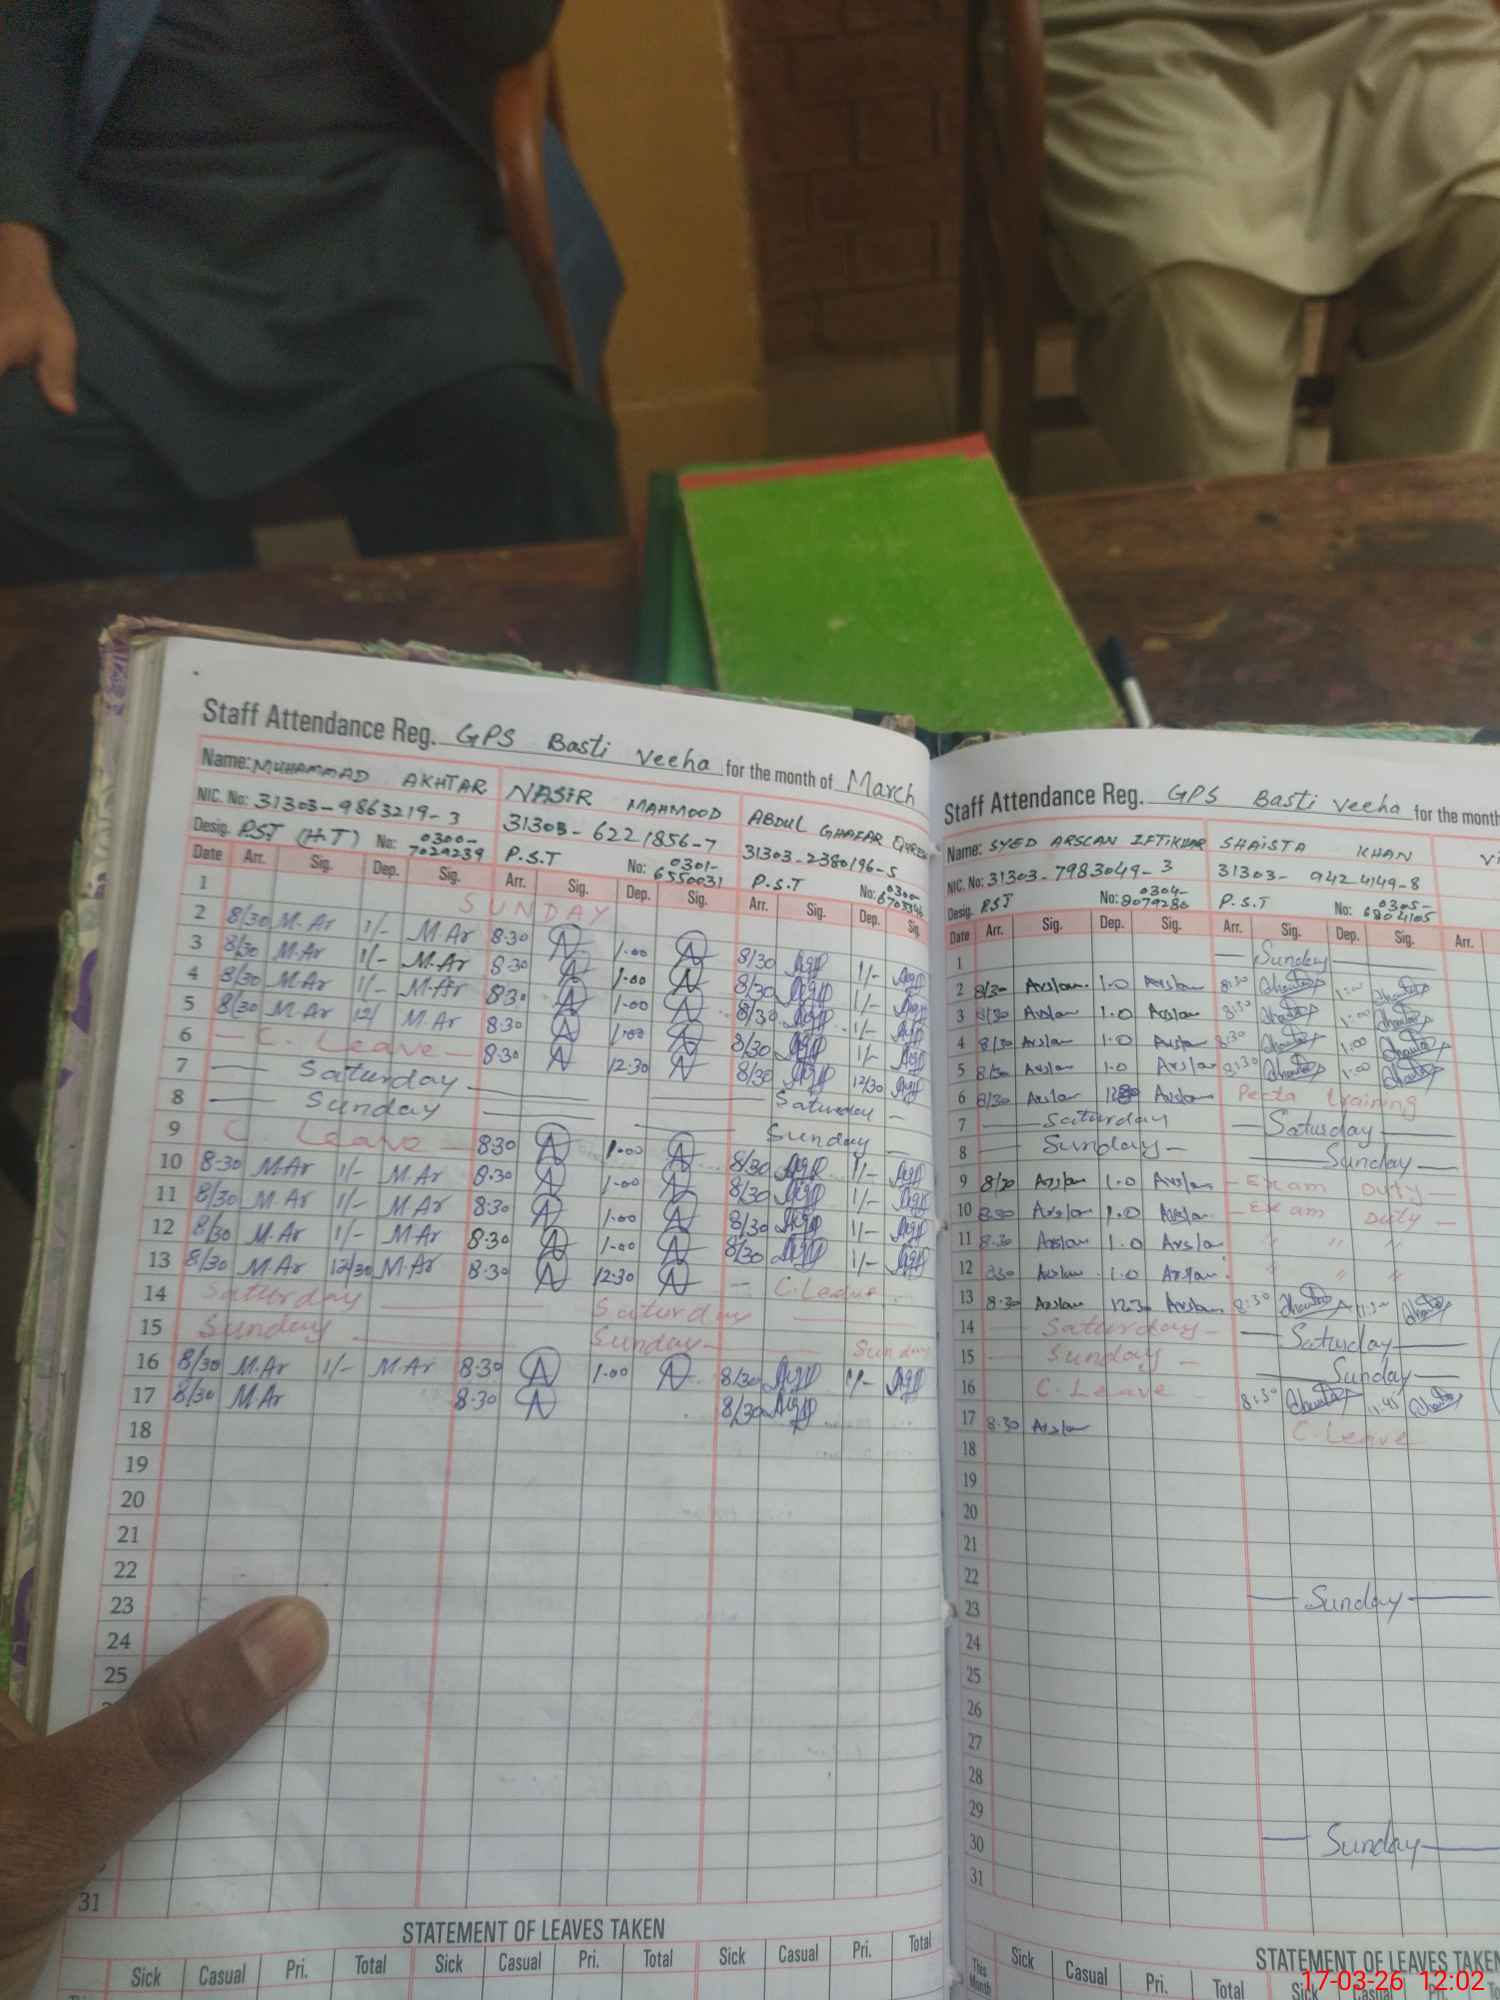 Staff Attendance Reg. GPS Basti Veeha for the month of March
Name: MUHAMMAD AKHTAR NASIR MAHMOOD ABDUL GHAFAR
NIC. No: 31303-9863219-3 31303-6221856-7 31303-2380196-5
Desig. PST (HT) No: 0300-7029239 P.S.T No: 0301-6550031 P.S.T No: 0300-
Date Arr. Sig. Dep. Sig. Arr. Sig. Dep. Sig. Arr. Sig. Dep. Sig.
1 SUNDAY
2 8/30 M.Ar 1/- M.Ar 8.30 1.00 8/30 1/-
3 8/30 M.Ar 1/- M.Ar 8.30 1.00 8/30 1/-
4 8/30 M.Ar 1/- M.Ar 8.30 1.00 8/30 1/-
5 8/30 M.Ar 12/ M.Ar 8.30 1.00 8/30 1/-
6 - C. Leave - 8.30 12.30 8/30 12/30
7 Saturday Saturday
8 Sunday Sunday
9 C. Leave 8.30 1.00 8/30 1/-
10 8.30 M.Ar 1/- M.Ar 8.30 1.00 8/30 1/-
11 8/30 M.Ar 1/- M.Ar 8.30 1.00 8/30 1/-
12 8/30 M.Ar 1/- M.Ar 8.30 1.00 8/30 1/-
13 8/30 M.Ar 12/30 M.Ar 8.30 12.30 - C. Leave
14 Saturday Saturday
15 Sunday Sunday Sunday
16 8/30 M.Ar 1/- M.Ar 8.30 1.00 8/30 1/-
17 8/30 M.Ar 8.30 8/30
18
19
20
21
22
23
24
25
31
STATEMENT OF LEAVES TAKEN
Sick Casual Pri. Total Sick Casual Pri. Total Sick Casual Pri. Total
Staff Attendance Reg. GPS Basti Veeha for the month
Name: SYED ARSLAN IFTIKHAR SHAISTA KHAN
NIC. No: 31303-7983049-3 31303-9424149-8
Desig. PST No: 0304-8079286 P.S.T No: 0305-6804105
Date Arr. Sig. Dep. Sig. Arr. Sig. Dep. Sig. Arr.
1 Sunday
2 8/30 Arslan 1.0 Arslan 8:30 1:00
3 8/30 Arslan 1.0 Arslan 8:30 1:00
4 8/30 Arslan 1.0 Arslan 8:30 1:00
5 8/30 Arslan 1.0 Arslan 8:30 1:00
6 8/30 Arslan Arslan Pecta training
7 Saturday Saturday
8 Sunday - Sunday
9 8/30 Arslan 1.0 Arslan - Exam Duty
10 8.30 Arslan 1.0 Arslan - Exam Duty -
11 8.30 Arslan 1.0 Arslan " " "
12 8.30 Arslan 1.0 Arslan " " "
13 8.30 Arslan 12.30 Arslan 8:30
14 Saturday - Saturday
15 Sunday - Sunday
16 C. Leave 8:30 11:45
17 8.30 Arslan C. Leave
18
19
20
21
22
23 Sunday
24
25
26
27
28
29
30 Sunday
31
STATEMENT OF LEAVES TAKEN
This Month Sick Casual Pri. Total Sick Casual Pri.
17-03-26 12:02